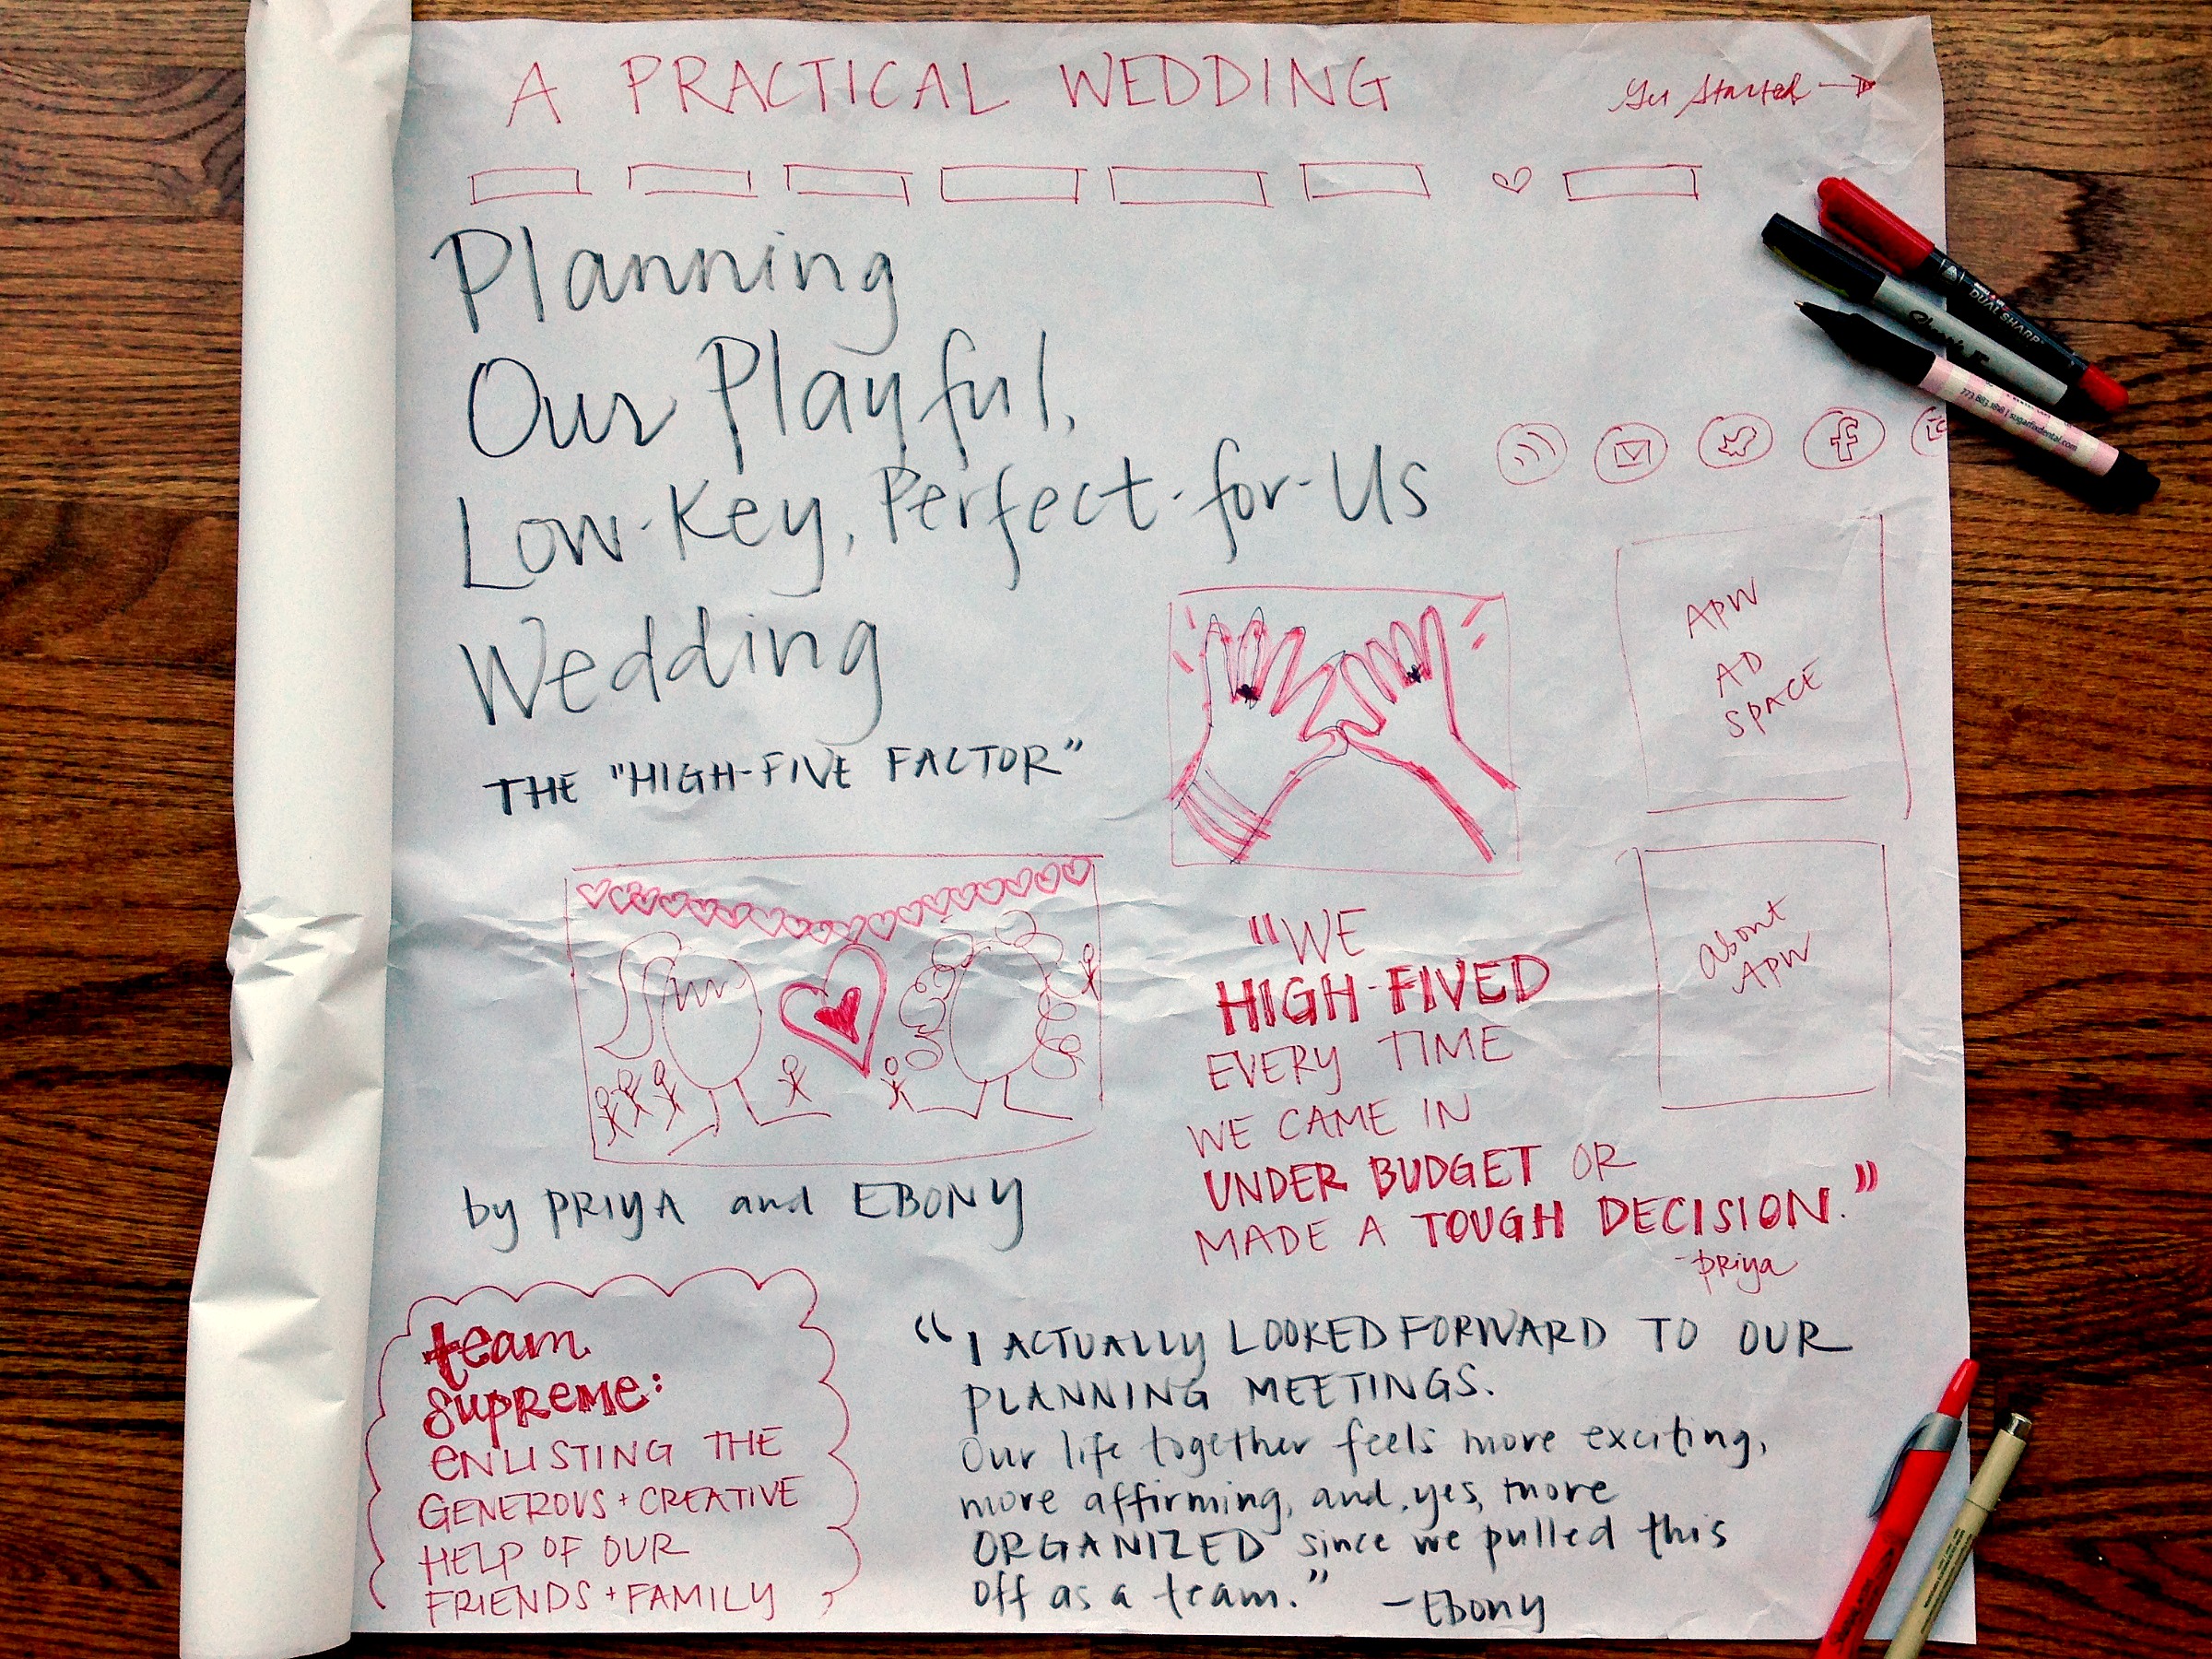 A PRACTICAL WEDDING
Get Started
Planning
Our Playful,
Low-Key, Perfect-for-Us
Wedding
THE "HIGH-FIVE FACTOR"
DUAL SHARP
773.883.1818 | sugarfixdental.com
f
APW
AD
SPACE
about
APW
"WE
HIGH-FIVED
EVERY TIME
WE CAME IN
UNDER BUDGET OR
MADE A TOUGH DECISION."
-priya
by PRIYA and EBONY
team
supreme:
ENLISTING THE
GENEROUS + CREATIVE
HELP OF OUR
FRIENDS + FAMILY
"I ACTUALLY LOOKED FORWARD TO OUR
PLANNING MEETINGS.
Our life together feels more exciting,
more affirming, and, yes, more
ORGANIZED since we pulled this
off as a team." -Ebony